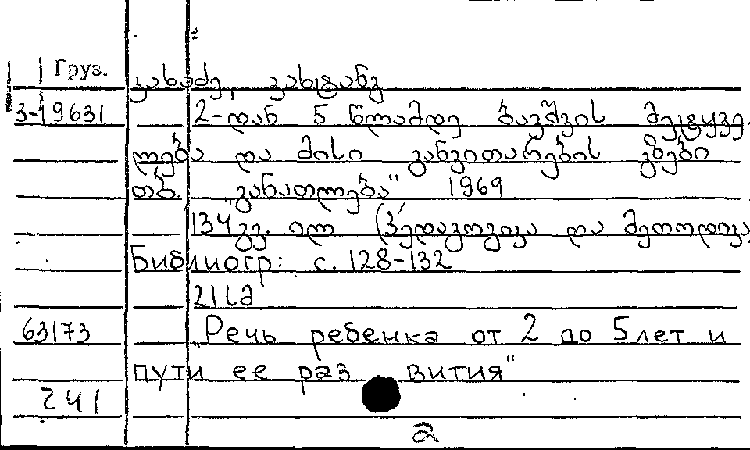 Груз.
კახაძე, ვახტანგ
3-19631 2-დან 5 წლამდე ბავშვის მეტყვე
ლება და მისი განვითარების გზები
თბ. „განათლება" 1969
134 გვ. ილ (პედაგოგიკა და მეთოდიკა
Библиогр: с. 128-132
21 სმ
63173 „Речь ребенка от 2 до 5 лет и
пути ее раз вития"
241